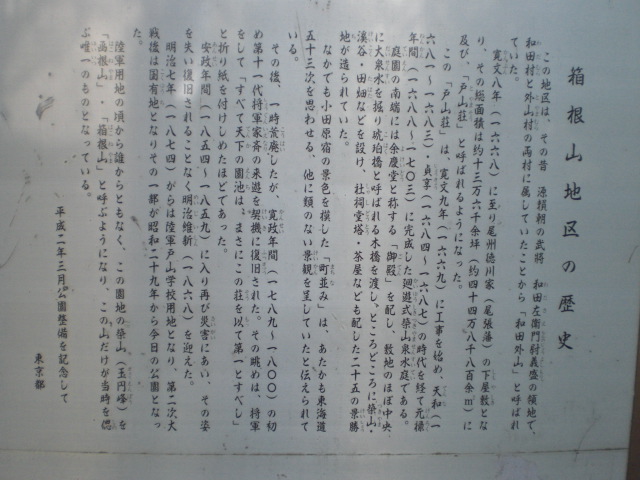 箱根山地区の歴史
この地区は、その昔 源頼朝の武將 和田左衛門尉義盛の領地で、
和田村と外山村の両村に属していたことから「和田外山」と呼ばれ
ていた。
寛文八年(一六六八)に至り尾州徳川家(尾張藩)の下屋敷とな
り、その総面積は約十三万六千余坪(約四十四万八千八百余㎡)に
及び、「戸山荘」と呼ばれるようになった。
この「戸山荘」は、寛文九年(一六六九)に工事を始め、天和(一
六八一~一六八三)・貞享(一六八四~一六八七)の時代を経て元祿
年間(一六八八~一七〇三)に完成した廻遊式築山泉水庭である。
庭園の南端には余慶堂と称する「御殿」を配し、敷地のほぼ中央
に大泉水を掘り琥珀橋と呼ばれる木橋を渡し、ところどころに築山・
渓谷・田畑などを設け、社祠堂塔・茶屋なども配した二十五の景勝
地が造られていた。
なかでも小田原宿の景色を模した「町並み」は、あたかも東海道
五十三次を思わせる、他に類のない景観を呈していたと伝えられて
いる。
その後、一時荒廃したが、寛政年間(一七八九~一八〇〇)の初
め第十一代将軍家斉の来遊を契機に復旧された。その眺めは、将軍
をして「すべて天下の園池は、まさにこの荘を以て第一とすべし」
と折り紙を付けしめたほどであった。
安政年間(一八五四~一八五九)に入り再び災害にあい、その姿
を失い復旧されることなく明治維新(一八六八)を迎えた。
明治七年(一八七四)からは陸軍戸山学校用地となり、第二次大
戦後は国有地となりその一部が昭和二十九年から今日の公園となっ
た。
陸軍用地の頃から誰からともなく、この園地の築山(玉円峰)を
「函根山」・「箱根山」と呼ぶようになり、この山だけが当時を偲
ぶ唯一のものとなっている。
平成二年三月公園整備を記念して
東京都